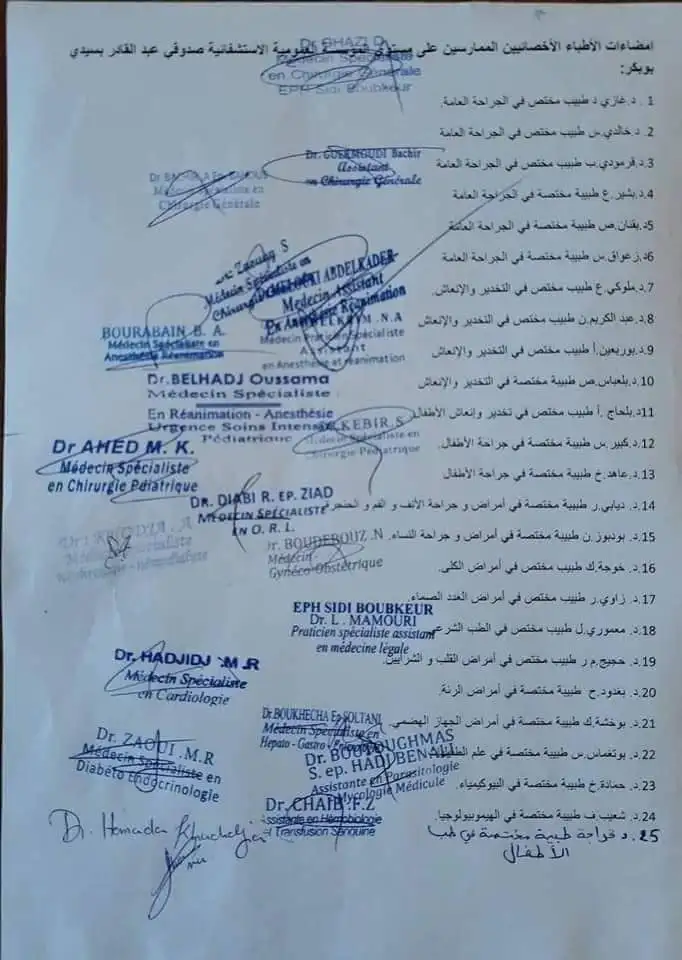 امضاءات الأطباء الأخصائيين الممارسين على مستوى المؤسسة العمومية الاستشفائية صدوقي عبد القادر بسيدي
بوبكر:
Dr GHAZI D
Médecin Spécialiste
en Chirurgie Générale
EPH Sidi Boubkeur
1 . د.غازي د طبيب مختص في الجراحة العامة.
2 .د. خالدي.س طبيب مختص في الجراحة العامة
3.د.قرمودي.ب طبيب مختص في الجراحة العامة
Dr. GUERMOUDI Bachir
Assistant
en Chirurgie Générale
Médecin Spécialiste en
Chirurgie Générale
4.د.بشير.ع طبيبة مختصة في الجراحة العامة
5د.بقنان.ص طبيبة مختصة في الجراحة العامة
6د.زعواق.س طبيبة مختصة في الجراحة العامة
Dr. Zaouag S
Médecin Spécialiste en
Chirurgie
7.د.ملوكي.ع طبيب مختص في التخدير والإنعاش.
MELOUKI ABDELKADER
Médecin Assistant
En Anesthésie Réanimation
8.د.عبد الكريم.ن طبيب مختص في التخدير والإنعاش
ABDELKRIM .N.A
Médecin Praticien Spécialiste
Assistant
en Anesthésie et réanimation
9.د.بوريعين.أ طبيب مختص في التخدير والإنعاش
BOURABAIN B. A.
Médecin Spécialiste en
Anesthésie Réanimation
10.د.بلعباس.ص طبيبة مختصة في التخدير والإنعاش
11د.بلحاج .أ طبيب مختص في تخدير وإنعاش الأطفال
Dr.BELHADJ Oussama
Médecin Spécialiste
En Réanimation - Anesthésie
Urgence Soins Intensifs
Pédiatrique
12.د.كبير.س طبيبة مختصة في جراحة الأطفال.
KEBIR .S
Médecin Spécialiste en
Chirurgie Pédiatrique
13.د.عاهد.خ طبيب مختص في جراحة الأطفال
Dr AHED M. K.
Médecin Spécialiste
en Chirurgie Pédiatrique
14.د. ديابي.ر طبيبة مختصة في أمراض و جراحة الأنف و الفم و الحنجرة
Dr. DIABI R. EP. ZIAD
MEDECIN SPÉCIALISTE
en O. R. L.
15.د. بودبوز.ن طبيبة مختصة في أمراض و جراحة النساء.
Dr. BOUDEBOUZ .N
Médecin
Gynéco-Obstétrique
16.د. خوجة.ك طبيب مختص في أمراض الكلى.
17.د. زاوي.ر طبيب مختص في أمراض الغدد الصماء.
18.د. معموري.ل طبيب مختص في الطب الشرعي
EPH SIDI BOUBKEUR
Dr. L . MAMOURI
Praticien spécialiste assistant
en médecine légale
19.د. حجيج.م ر طبيب مختص في أمراض القلب و الشرايين.
Dr. HADJIDJ .M .R
Médecin Spécialiste
en Cardiologie
20.د. بغدود.ح طبيبة مختصة في أمراض الرئة.
21.د. بوخشة.ك طبيبة مختصة في أمراض الجهاز الهضمي.
Dr.BOUKHECHA Ep SOLTANI
Médecin Spécialiste en
Hepato - Gastro - Entérologie
22.د. بوتغماس.س طبيبة مختصة في علم
Dr. BOUTOUGHMAS
S. ep. HADJ BENALI
Assistante en Parasitologie
Mycologie Médicule
Dr. ZAOUI .M.R
Médecin Spécialiste en
Diabéto Endocrinologie
23.د. حمادة.خ طبيبة مختصة في البيوكيمياء.
24.د. شعيب.ف طبيبة مختصة في الهيموبيولوجيا.
Dr. CHAIB .F.Z
Assistante en Hémobiologie
et Transfusion Sanguine
Dr. Hamada Khadidja
25. د طبيبة مختصة في طب
الأطفال